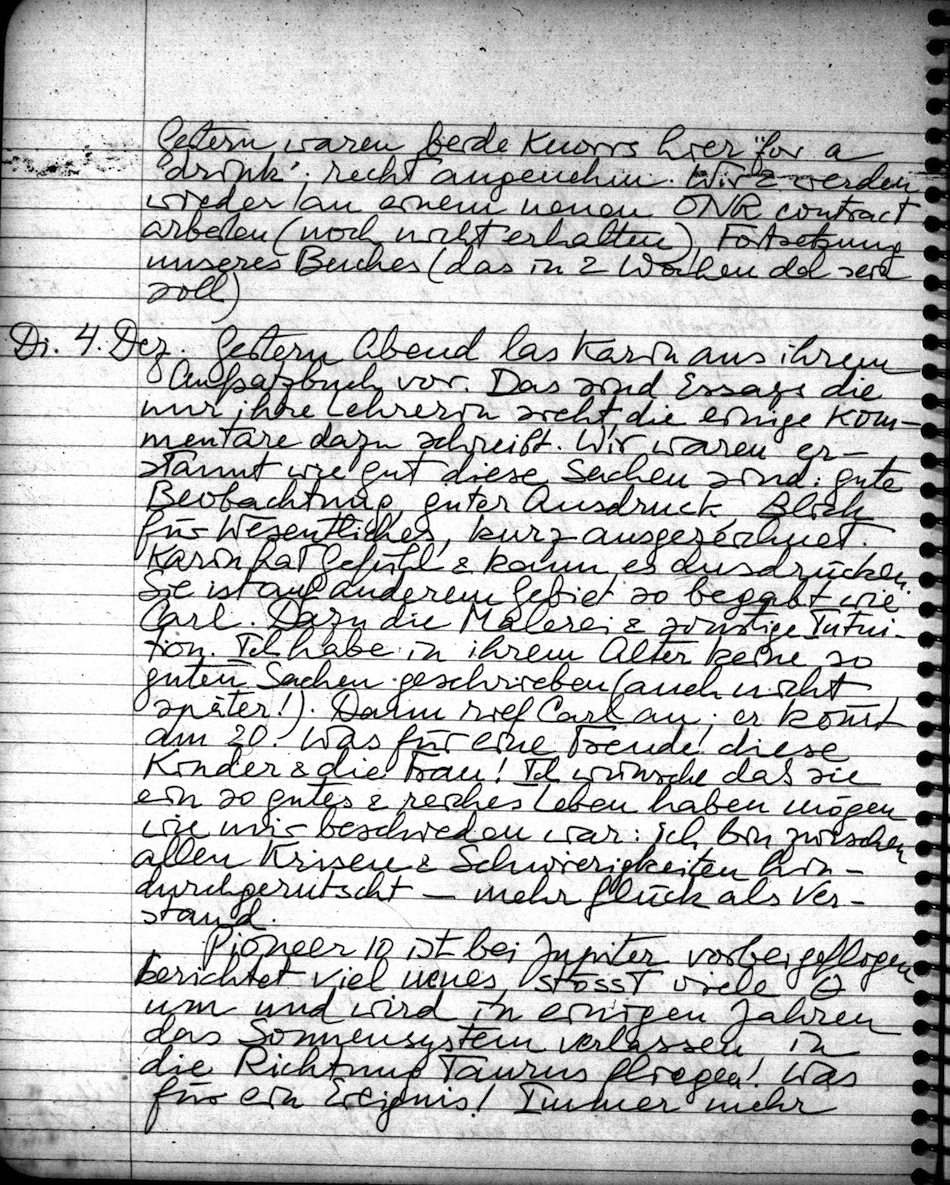 Gestern waren beide Knorrs hier "for a
drink", recht angenehm. Wir 2 werden
wieder an einem neuen ONR contract
arbeiten (noch nicht erhalten), Fortsetzung
unseres Buches (das in 2 Wochen da sein
soll)
Di. 4. Dez. Gestern Abend las Karin aus ihrem
Aufsatzbuch vor. Das sind Essays die
nur ihre Lehrerin sieht, die einige Kom-
mentare dazu schreibt. Wir waren er-
staunt wie gut diese Sachen sind: gute
Beobachtung, guter Ausdruck, Blick
für Wesentliches, kurz ausgezeichnet.
Karin hat Gefühl & kann es ausdrücken.
Sie ist auf anderem Gebiet so begabt wie
Carl. Dazu die Malerei & sonstige Intui-
tion. Ich habe in ihrem Alter keine so
guten Sachen geschrieben (auch nicht
später!). Dann rief Carl an; er kom̄t
am 20! Was für eine Freude! diese
Kinder & die Frau! Ich wünsche daß sie
ein so gutes & reiches Leben haben mögen
wie mir beschieden war: ich bin zwischen
allen Krisen & Schwierigkeiten hin-
durchgerutscht — mehr Glück als Ver-
stand.
Pioneer 10 ist bei Jupiter vorbeigeflogen
berichtet viel neues, stösst viele
um und wird in einigen Jahren
das Sonnensystem verlassen in
die Richtung Taurus fliegen! Was
für ein Ereignis! Immer mehr